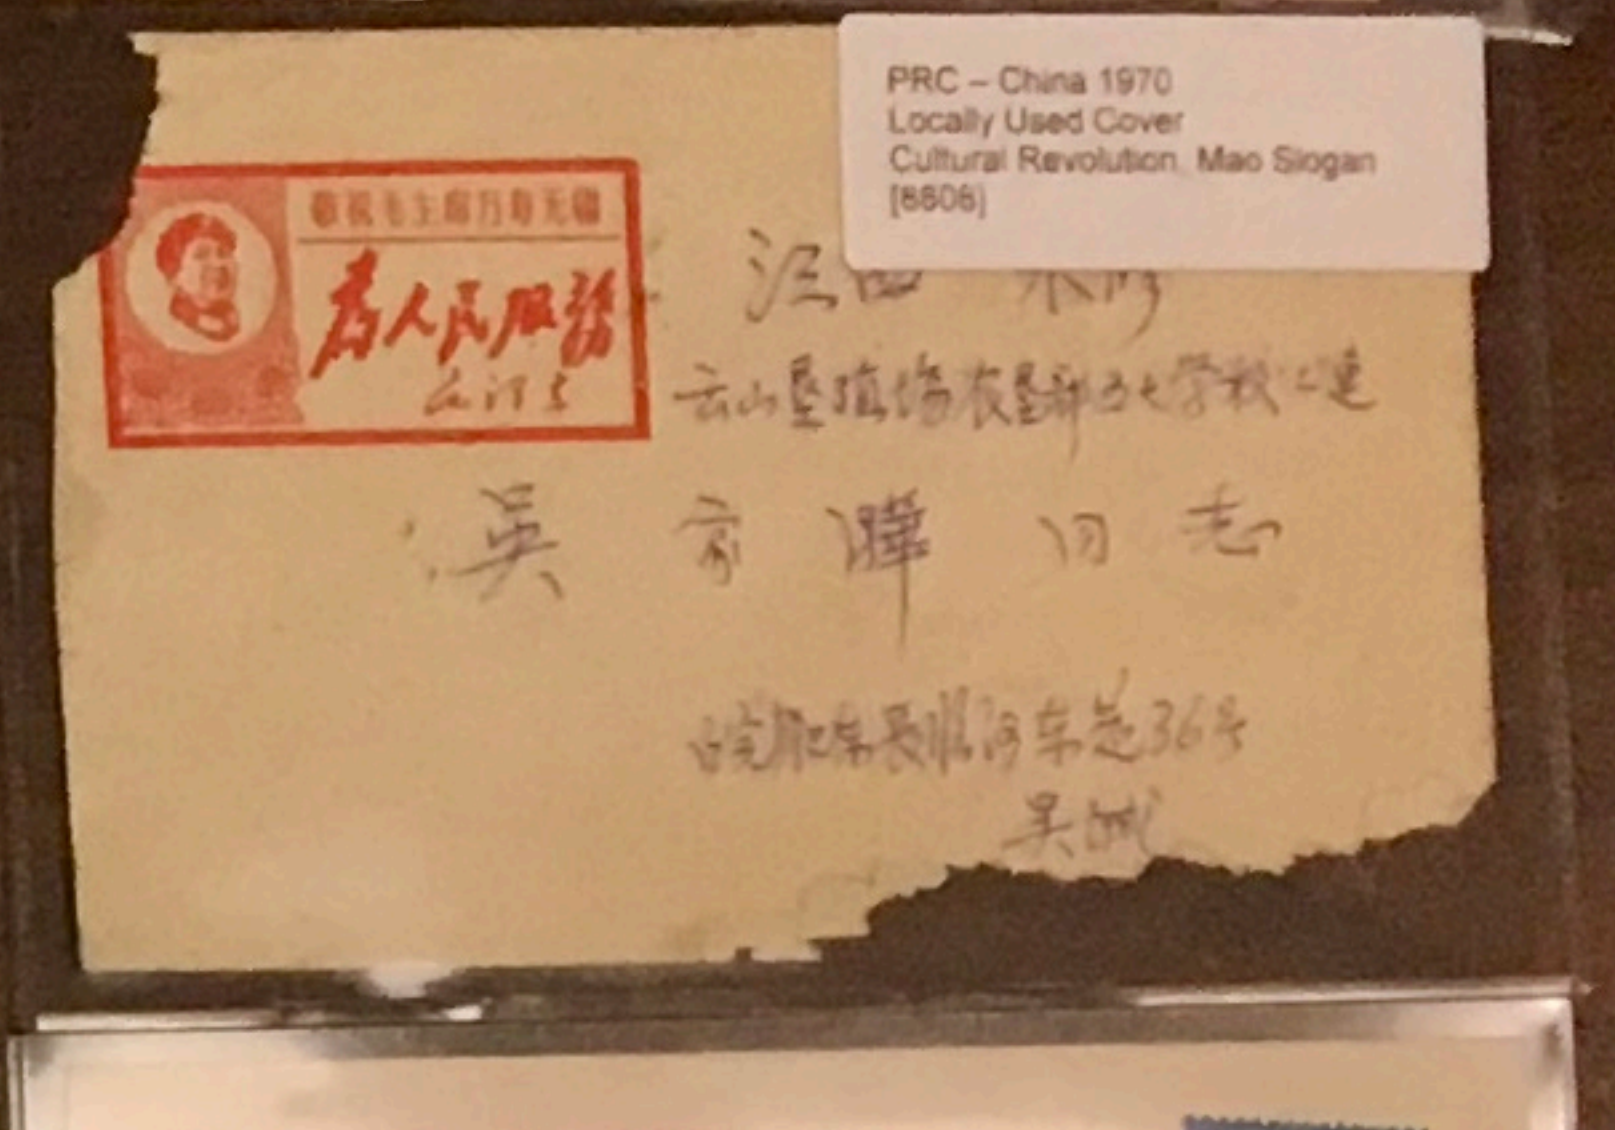 PRC – China 1970
Locally Used Cover
Cultural Revolution, Mao Slogan
[8808]
敬祝毛主席万寿无疆
为人民服务
毛泽东
江西 永修
云山垦殖场农垦部五七学校二连
吴 家 同 志
皖肥东长临河东是36号
吴